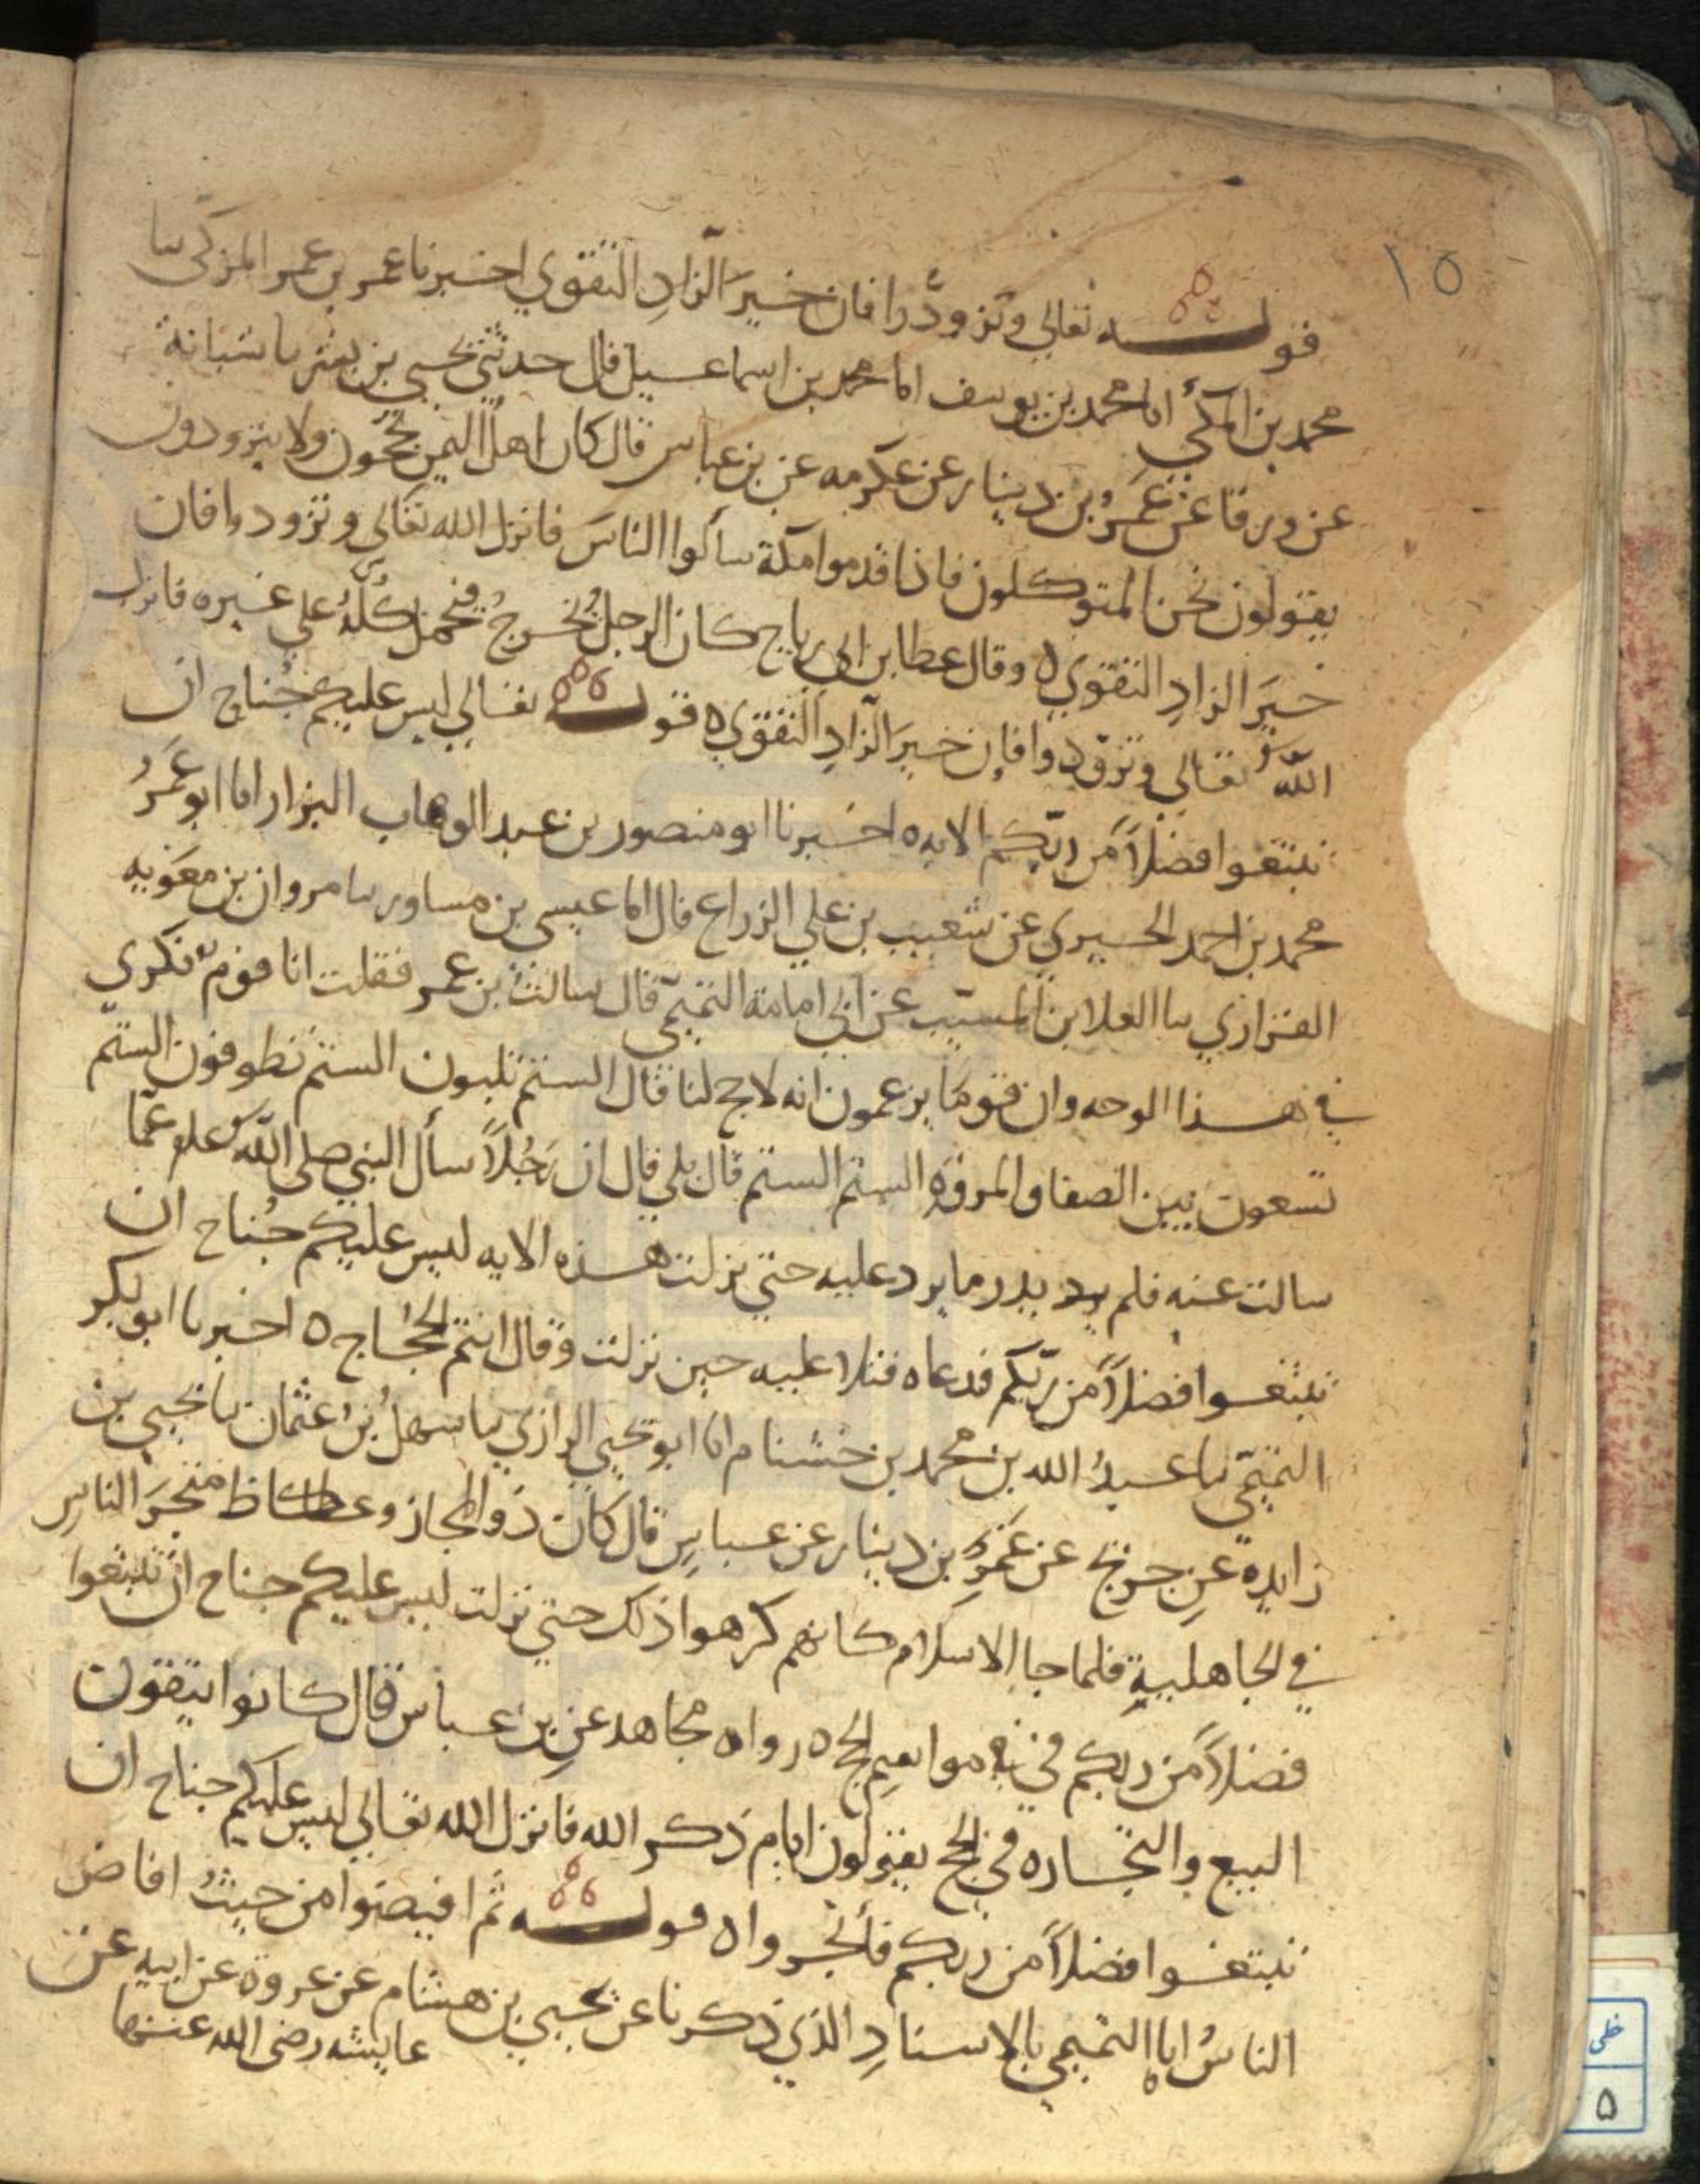 ١٥
قوله تعالى وتزودوا فان خير الزادِ التقوي اخبرنا عمر بن عمر المزكى سا
محمد بن المكي انا محمد بن يوسف انا محمد بن اسماعيل قال حدثني يحيى بن بشر نا شبابة
عن ورقا عن عَمرو بن دينار عن عكرمه عن بن عباس قال كان اهل اليمن يحجون ولا يتزودون
يقولون نحن المتوكلون فاذا قدموا مكة سألوا الناسَ فانزل الله تعالى وتزودوا فان
خيرَ الزادِ التقوي ٥ وقال عطا بن ابي رباح كان الرجل يُخرجُ فيحمل كلُّه على غيره فانزل
اللهُ تعالي وتزودوا فإن خيرَ الزادِ التقوي ٥ قوله تعالي ليس عليكم جُناح ان
تبتغوا فضلاً من ربكم الايه ٥ اخبرنا ابو منصور بن عبد الوهاب البزار انا ابو عَمرو
محمد بن احمد الحيري عن شعيب بن علي الزراع قال انا عيسى بن مساور سا مروان بن معويه
الفزاري سا العلا بن المسيّب عن ابي امامة التميمّي قال سالت بن عمر فقلت انا قوم نكرى
في هذا الوجه وان قومًا يزعمون انه لا حج لنا قال الستم تلبون الستم تطوفون الستم
تسعون بين الصفا والمروة الستم الستم قال بلي قال ان رَجُلاً سأل النبي صلى الله علىه عمّا
سالت عنه فلم يدر ما يرد عليه حتي نزلت هذه الايه ليس عليكم جُناح ان
تبتغوا فضلاً من ربّكم فدعاه فتلا عليه حين نزلت وقال انتم الحُجاج ٥ اخبرنا ابو بكر
التميمّي نا عبدُ الله بن محمد بن خشنام انا ابو يحيي الرازي نا سهلُ بنُ عثمان نا يحيي بن
زايدة عن جريج عن عَمرو بن دينار عن عباسٍ قال كان ذو المجاز وعكاظ متجرَ الناسِ
في الجاهليةِ فلما جا الاسلام كانهم كرهوا ذلك حتي نزلت ليس عليكم جناح ان تبتغوا
فضلاً من ربكم في مواسم الحج ٥ رواه مجاهد عن بن عباس قال كانوا يتقون
البيع والتجاره في الحج يقولون ايام ذكر الله فانزل الله تعالي ليس عليكم جناح ان
تبتغوا فضلاً من ربكم فأتجروا ٥ قوله ثم افيضوا من حيثُ افاض
الناسُ انا التميمي بالاسنادِ الذي ذكرنا عن يحيي بن هشام عن عروة عن ابيه عن
عايشه رضى الله عنها
خطی
۵